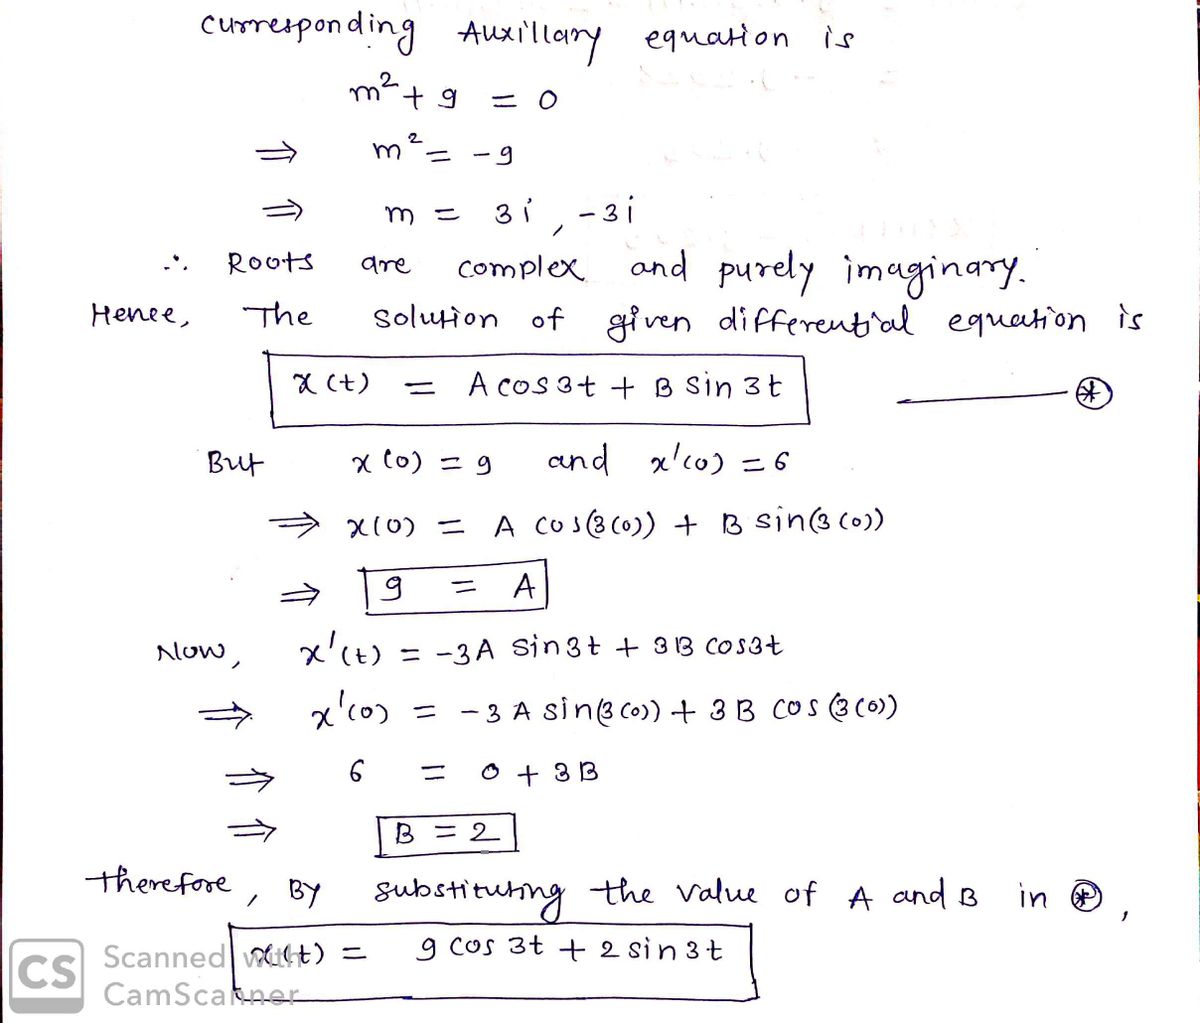 curresponding Auxillary equation is
m² + 9 = 0
⇒ m² = -9
⇒ m = 3i , -3i
∴ Roots are complex and purely imaginary.
Hence, The solution of given differential equation is
x(t) = A cos3t + B Sin 3t ——— ⊛
But x(0) = 9 and x'(0) = 6
⇒ x(0) = A cos(3(0)) + B sin(3(0))
⇒ 9 = A
Now, x'(t) = -3A Sin3t + 3B cos3t
⇒ x'(0) = -3A sin(3(0)) + 3B cos(3(0))
⇒ 6 = 0 + 3B
⇒ B = 2
therefore, By substituting the value of A and B in ⊛,
x(t) = 9 cos 3t + 2 sin3t
CS Scanned with
CamScanner